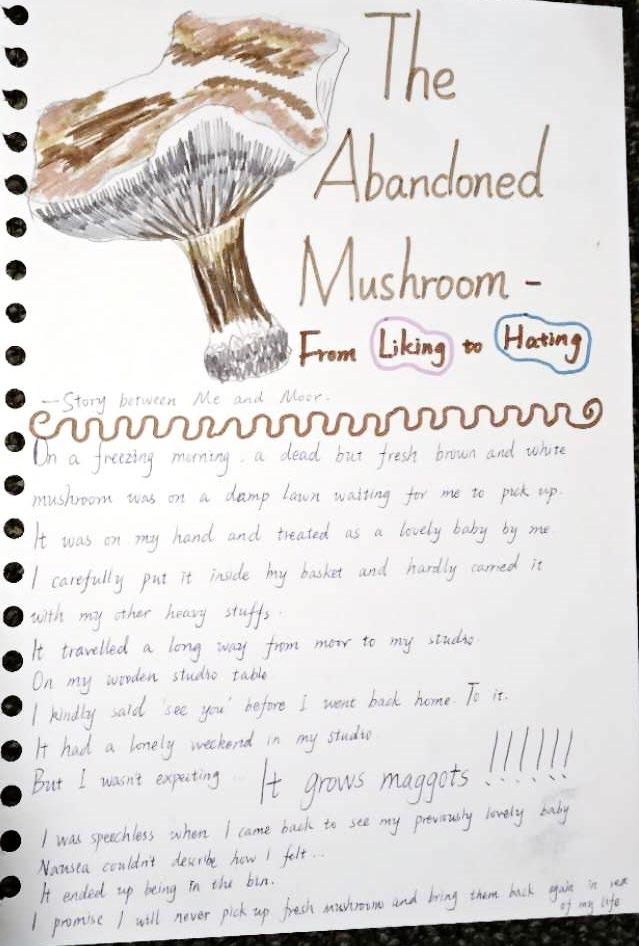 The
Abandoned
Mushroom -
From Liking to Hating
— Story between Me and Moor.
On a freezing morning. a dead but fresh brown and white
mushroom was on a damp lawn waiting for me to pick up.
It was on my hand and treated as a lovely baby by me.
I carefully put it inside my basket and hardly carried it
with my other heavy stuffs.
It travelled a long way from moor to my studio.
On my wooden studio table
I kindly said 'see you' before I went back home. To it.
It had a lonely weekend in my studio.
But I wasn't expecting ... It grows maggots !!!!!!
I was speechless when I came back to see my previously lovely baby
Nausea couldn't describe how I felt...
It ended up being in the bin.
I promise I will never pick up fresh mushroom and bring them back again in rest
of my life